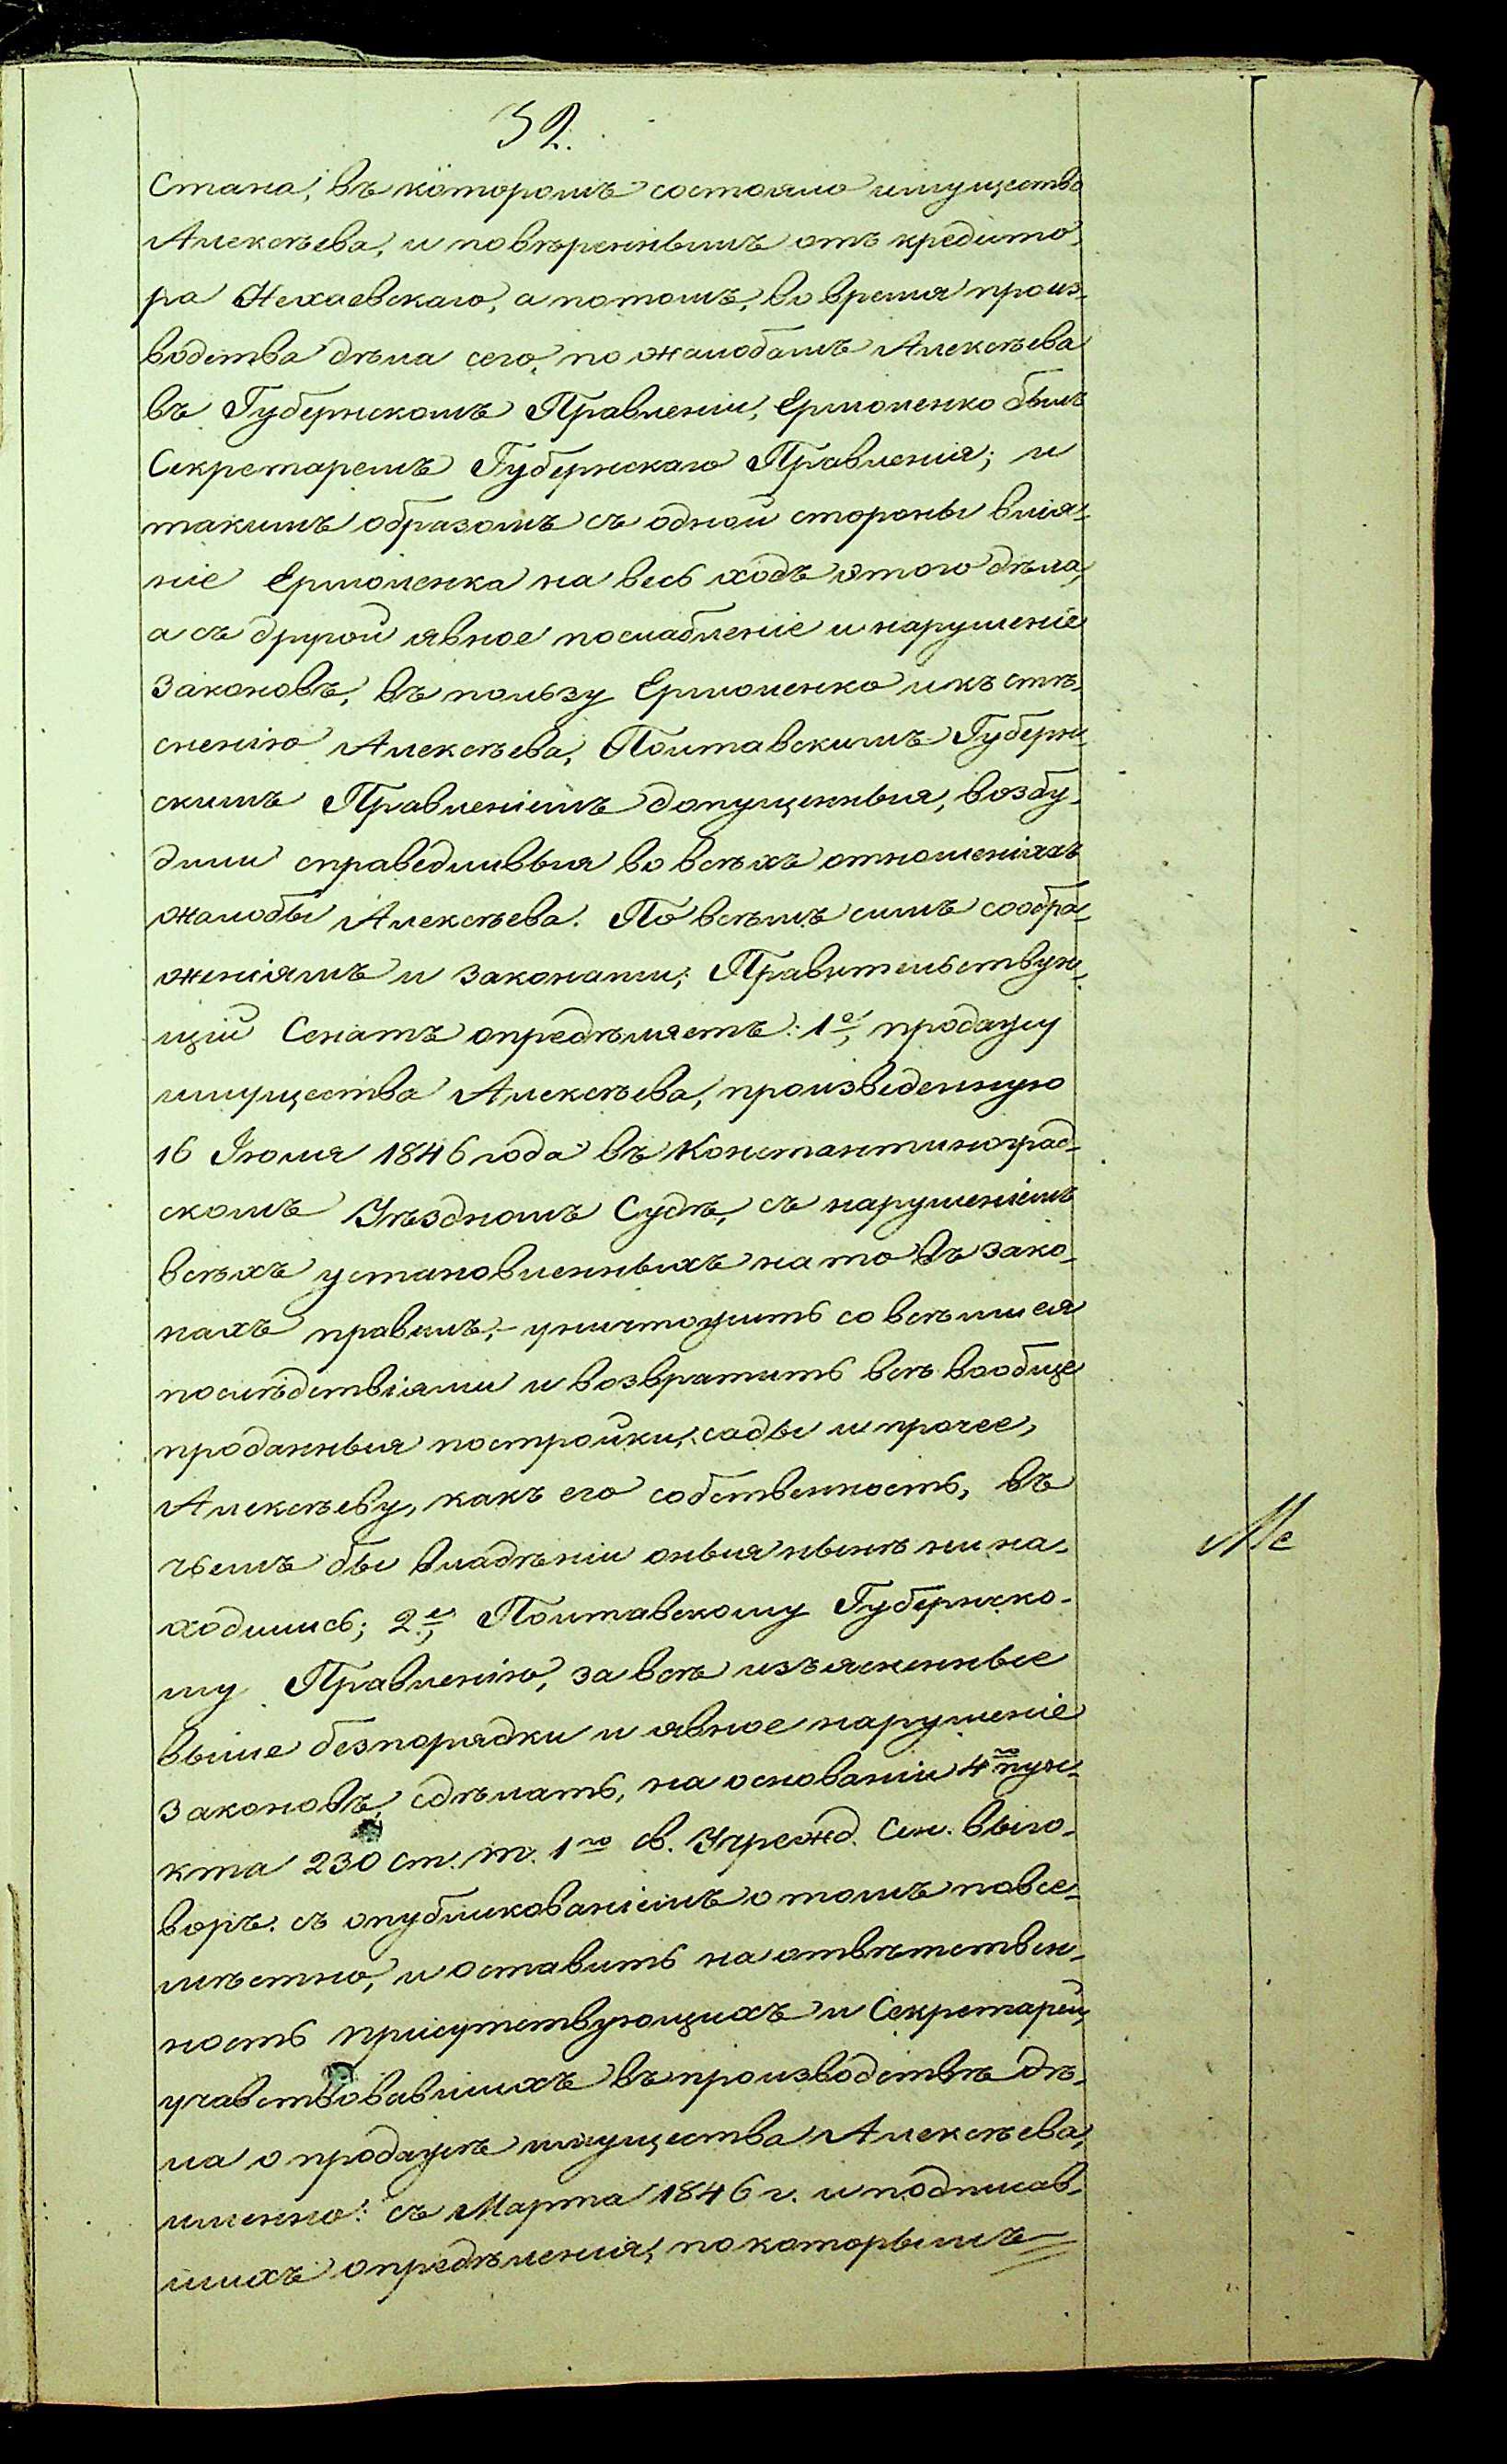 32.
Стана, въ которомъ состояло имущество
Алексѣева, и повѣреннымъ отъ кредито-
ра Нехаевскаго, а потомъ, во время произ-
водства дѣла сего, по жалобамъ Алексѣева
въ Губернскомъ Правленіи, Ермоленко былъ
Секретаремъ Губернскаго Правленія; и
такимъ образомъ съ одной стороны влія-
ніе Ермоленка на весь ходъ этого дѣла,
а съ другой явное послабленіе и нарушеніе
Законовъ, въ пользу Ермоленко и къ стѣ-
сненію Алексѣева, Полтавскимъ Губерн-
скимъ Правленіемъ допущенныя, возбу-
дили справедливыя во всѣхъ отношеніяхъ
жалобы Алексѣева. По всѣмъ симъ сообра-
женіямъ и законами; Правительствую-
щій Сенатъ опредѣляетъ: 1е, продажу
имущества Алексѣева, произведенную
16 Іюля 1846 года въ Константиноград-
скомъ Уѣздномъ Судѣ, съ нарушеніемъ
всѣхъ установленныхъ на то въ зако-
нахъ правилъ,- уничтожить со всѣми ея
послѣдствіями и возвратить всѣ вообще
проданныя постройки, сады и прочее,
Алексѣеву, какъ его собственность, въ
чьемъ бы владѣніи оныя нынѣ ни на-
ходились; 2е, Полтавскому Губернско-
му Правленію, за всѣ изъясненные
выше безпорядки и явное нарушеніе
Законовъ, сдѣлать, на основаніи 4го пун-
кта 230 ст. т. 1го св. Учрежд. Сен. выго-
воръ. съ опубликованіемъ о томъ повсе-
мѣстно, и оставить на отвѣтствен-
ность присутствующихъ и Секретарей,
учавствовавшихъ въ производствѣ дѣ-
ла о продажѣ имущества Алексѣева,
именно: съ Марта 1846 г. и подписав-
шихъ опредѣленія, по которымъ